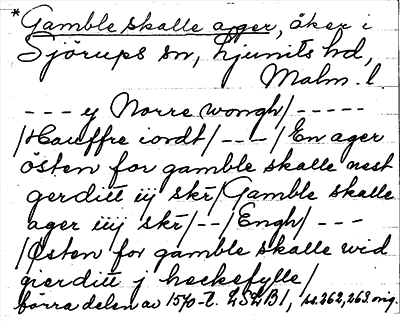 *Gamble skalle ager, åker i
Sjörups sn, Ljunits hd,
Malm. l.
--- y Norre wongh/-----
/Hauffre iordt/---/En ager
østen for gamble skalle nest
gerditt iij skr/Gamble skalle
ager iiij skr/--/Engh/---
/Østen for gamble skalle wid
gierditt j heckefylle/
förra delen av 1570-t. LSLB1, ss. 262, 263. orig.